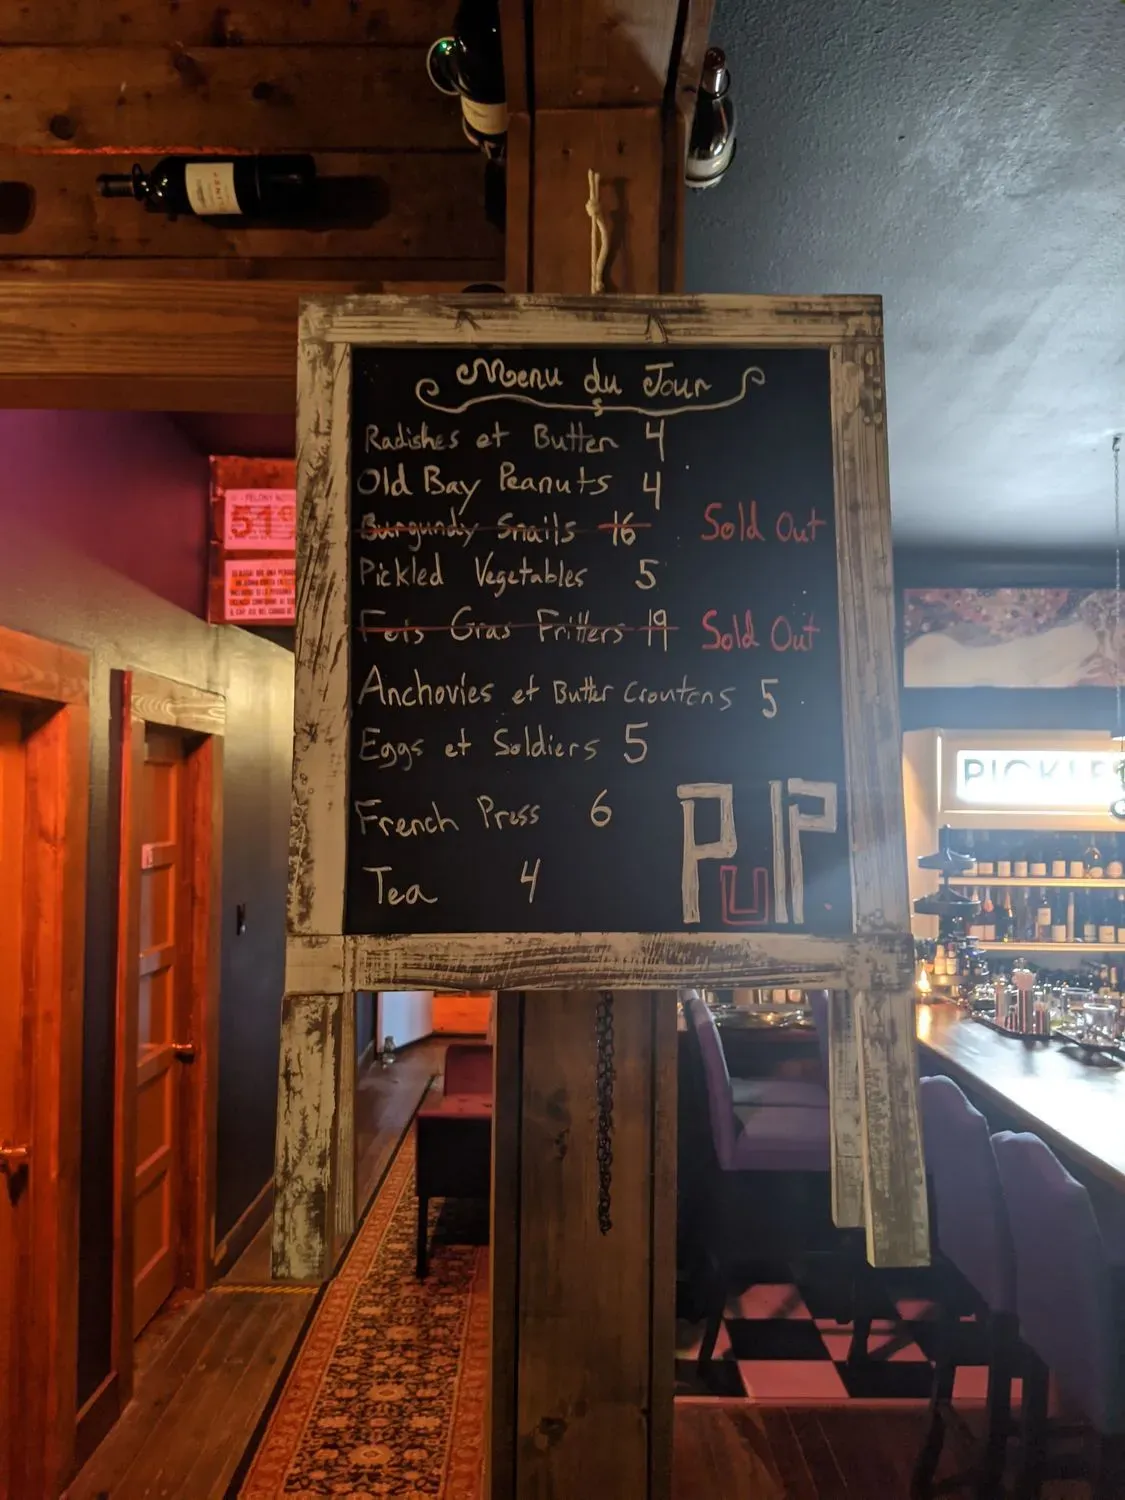 Menu du Jour
Radishes et Butter 4
Old Bay Peanuts 4
Burgundy Snails 16 Sold Out
Pickled Vegetables 5
Fois Gras Fritters 19 Sold Out
Anchovies et Butter Croutons 5
Eggs et Soldiers 5
French Press 6
Tea 4
PulP
FELONY
51%
PICKLE